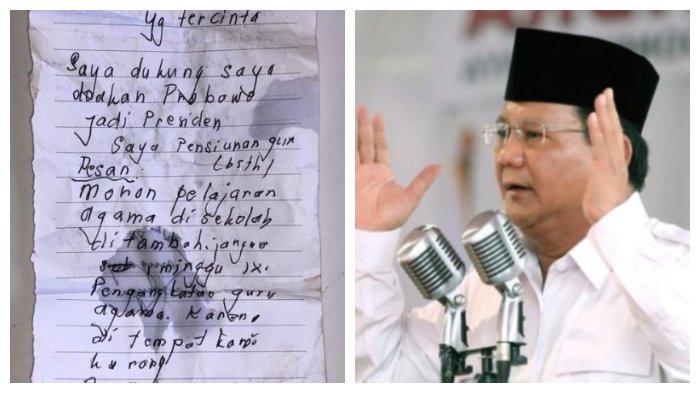 Yg tercinta
Saya dukung saya
doakan Prabowo
jadi Presiden
Saya Pensiunan guru
Pesan
Mohon pelajaran
agama di sekolah
ditambah. jangan
1 minggu 1x.
Pengangkatan guru
agama. Karena
di tempat kami
kurang